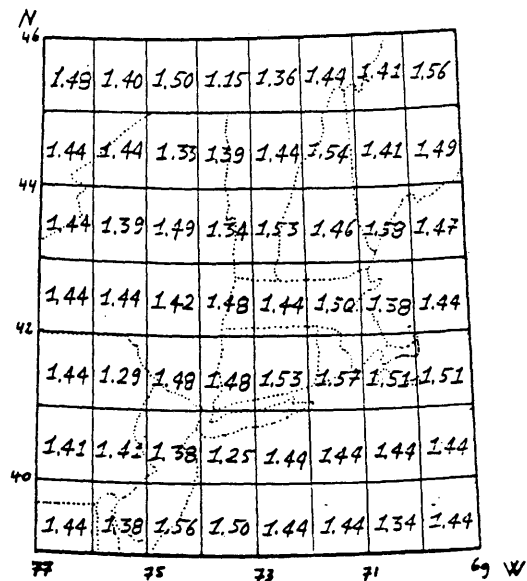 N
46
1.43 1.40 1.50 1.15 1.36 1.44 1.41 1.56
1.44 1.44 1.33 1.39 1.44 1.54 1.41 1.49
44
1.44 1.39 1.49 1.34 1.53 1.46 1.58 1.47
1.44 1.44 1.42 1.48 1.44 1.50 1.38 1.44
42
1.44 1.29 1.48 1.48 1.53 1.57 1.51 1.51
1.41 1.38 1.25 1.44 1.44 1.44 1.44
40
1.44 1.38 1.56 1.50 1.44 1.44 1.34 1.44
77 75 73 71 69 W